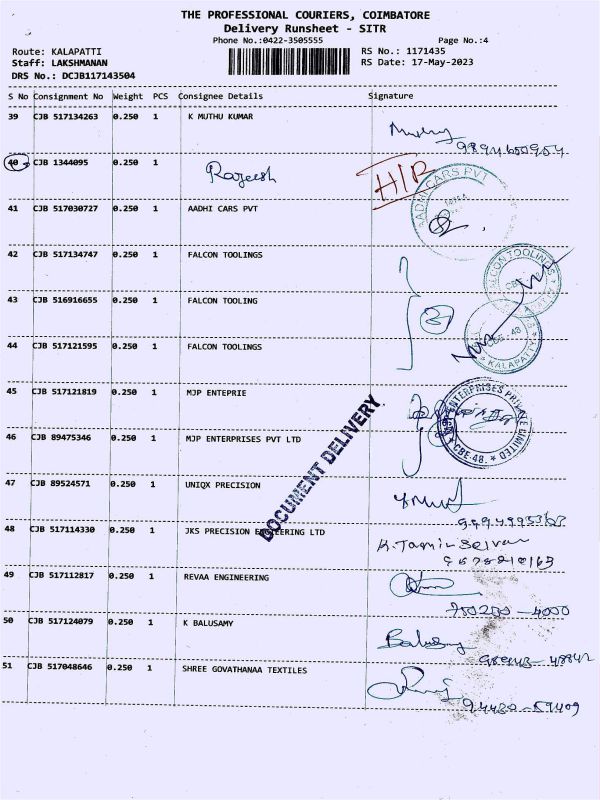 THE PROFESSIONAL COURIERS, COIMBATORE
Delivery Runsheet - SITR
Phone No.:0422-3505555 Page No.:4
Route: KALAPATTI RS No.: 1171435
Staff: LAKSHMANAN RS Date: 17-May-2023
DRS No.: DCJB117143504
S No Consignment No Weight PCS Consignee Details Signature
39 CJB 517134263 0.250 1 K MUTHU KUMAR
40 CJB 1344095 0.250 1 Rajeesh
41 CJB 517030727 0.250 1 AADHI CARS PVT
AADHI CARS PVT
42 CJB 517134747 0.250 1 FALCON TOOLINGS
FALCON TOOLINGS
43 CJB 516916655 0.250 1 FALCON TOOLING
CBE-48
KALAPATTY
44 CJB 517121595 0.250 1 FALCON TOOLINGS
45 CJB 517121819 0.250 1 MJP ENTEPRIE
ENTERPRISES PRIVATE LIMITED
CBE-48.
46 CJB 89475346 0.250 1 MJP ENTERPRISES PVT LTD
DOCUMENT DELIVERY
47 CJB 89524571 0.250 1 UNIQX PRECISION
48 CJB 517114330 0.250 1 JKS PRECISION ENGINEERING LTD
K. Tamil Selvan
49 CJB 517112817 0.250 1 REVAA ENGINEERING
50 CJB 517124079 0.250 1 K BALUSAMY
Balusamy
51 CJB 517048646 0.250 1 SHREE GOVATHANAA TEXTILES
94430-59409